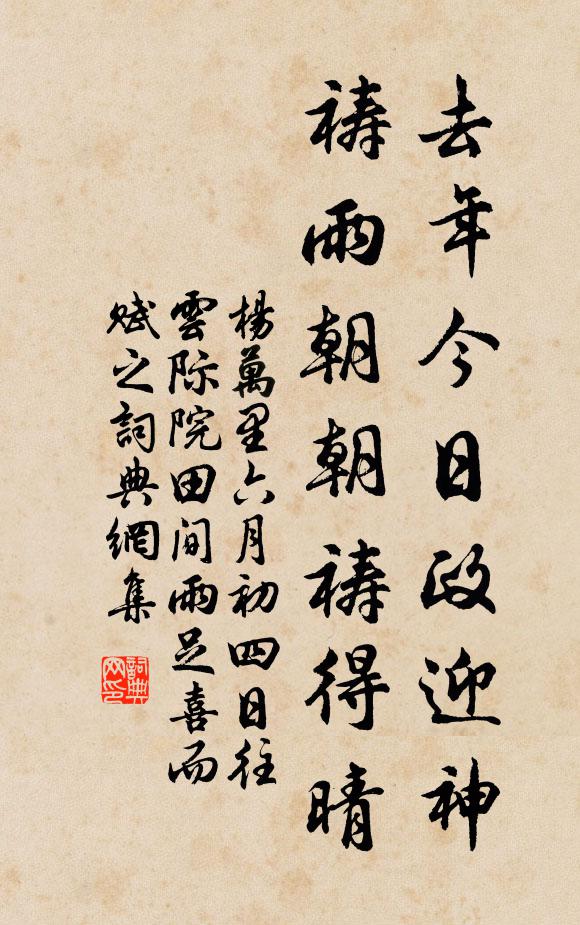 去年今日政迎神
祷雨朝朝祷得晴
楊萬里六月初四日往
雲际院田间雨足喜而
赋之詞典網集
詞典
网印